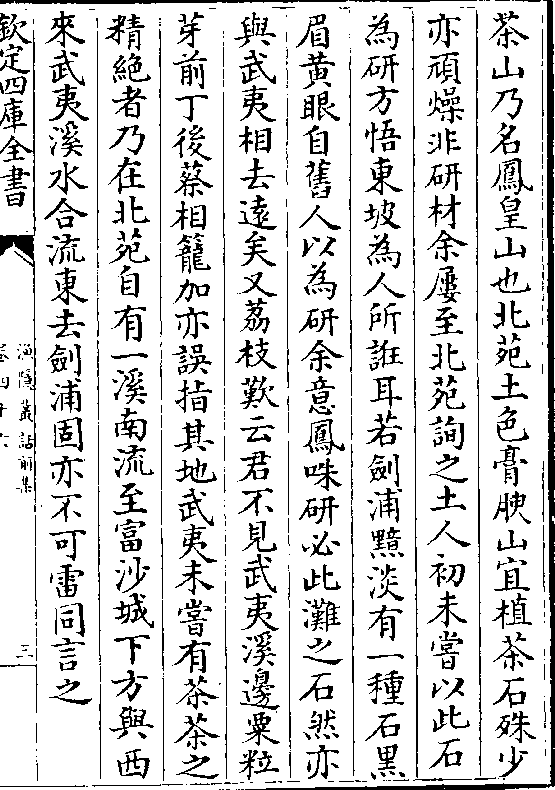 茶山乃名鳳皇山也北苑土色膏腴山宜植茶石殊少
亦頑燥非研材余屢至北苑詢之土人初未嘗以此石
為研方悟東坡為人所誑耳若劍浦黯淡有一種石黑
眉黄眼自舊人以為研余意鳳咮研必此灘之石然亦
與武夷相去遠矣又荔枝歎云君不見武夷溪邊粟粒
芽前丁後蔡相籠加亦誤指其地武夷未嘗有茶茶之
精絶者乃在北苑自有一溪南流至富沙城下方與西
來武夷溪水合流東去劍浦固亦不可雷同言之
欽定四庫全書
漁隱叢話前集
三